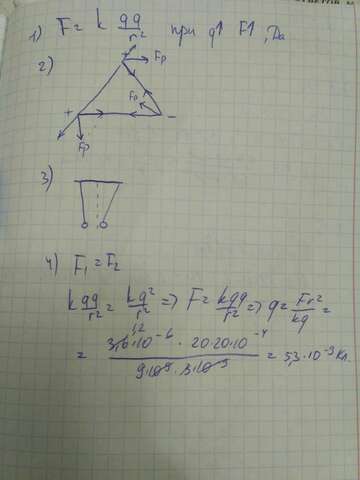 1) F = k qq/r² при q↑ F↑, Да
2)
+ Fp
Fp
+ −
Fp
3)
4) F₁ = F₂
k qq/r² = kq²/r² => F = kqq/r² => q = Fr²/kq =
= 3,6·10⁻⁶ · 20·20·10⁻⁴ / 9·10⁹ · 3·10⁻⁹ = 5,3·10⁻⁹ Кл
1,2